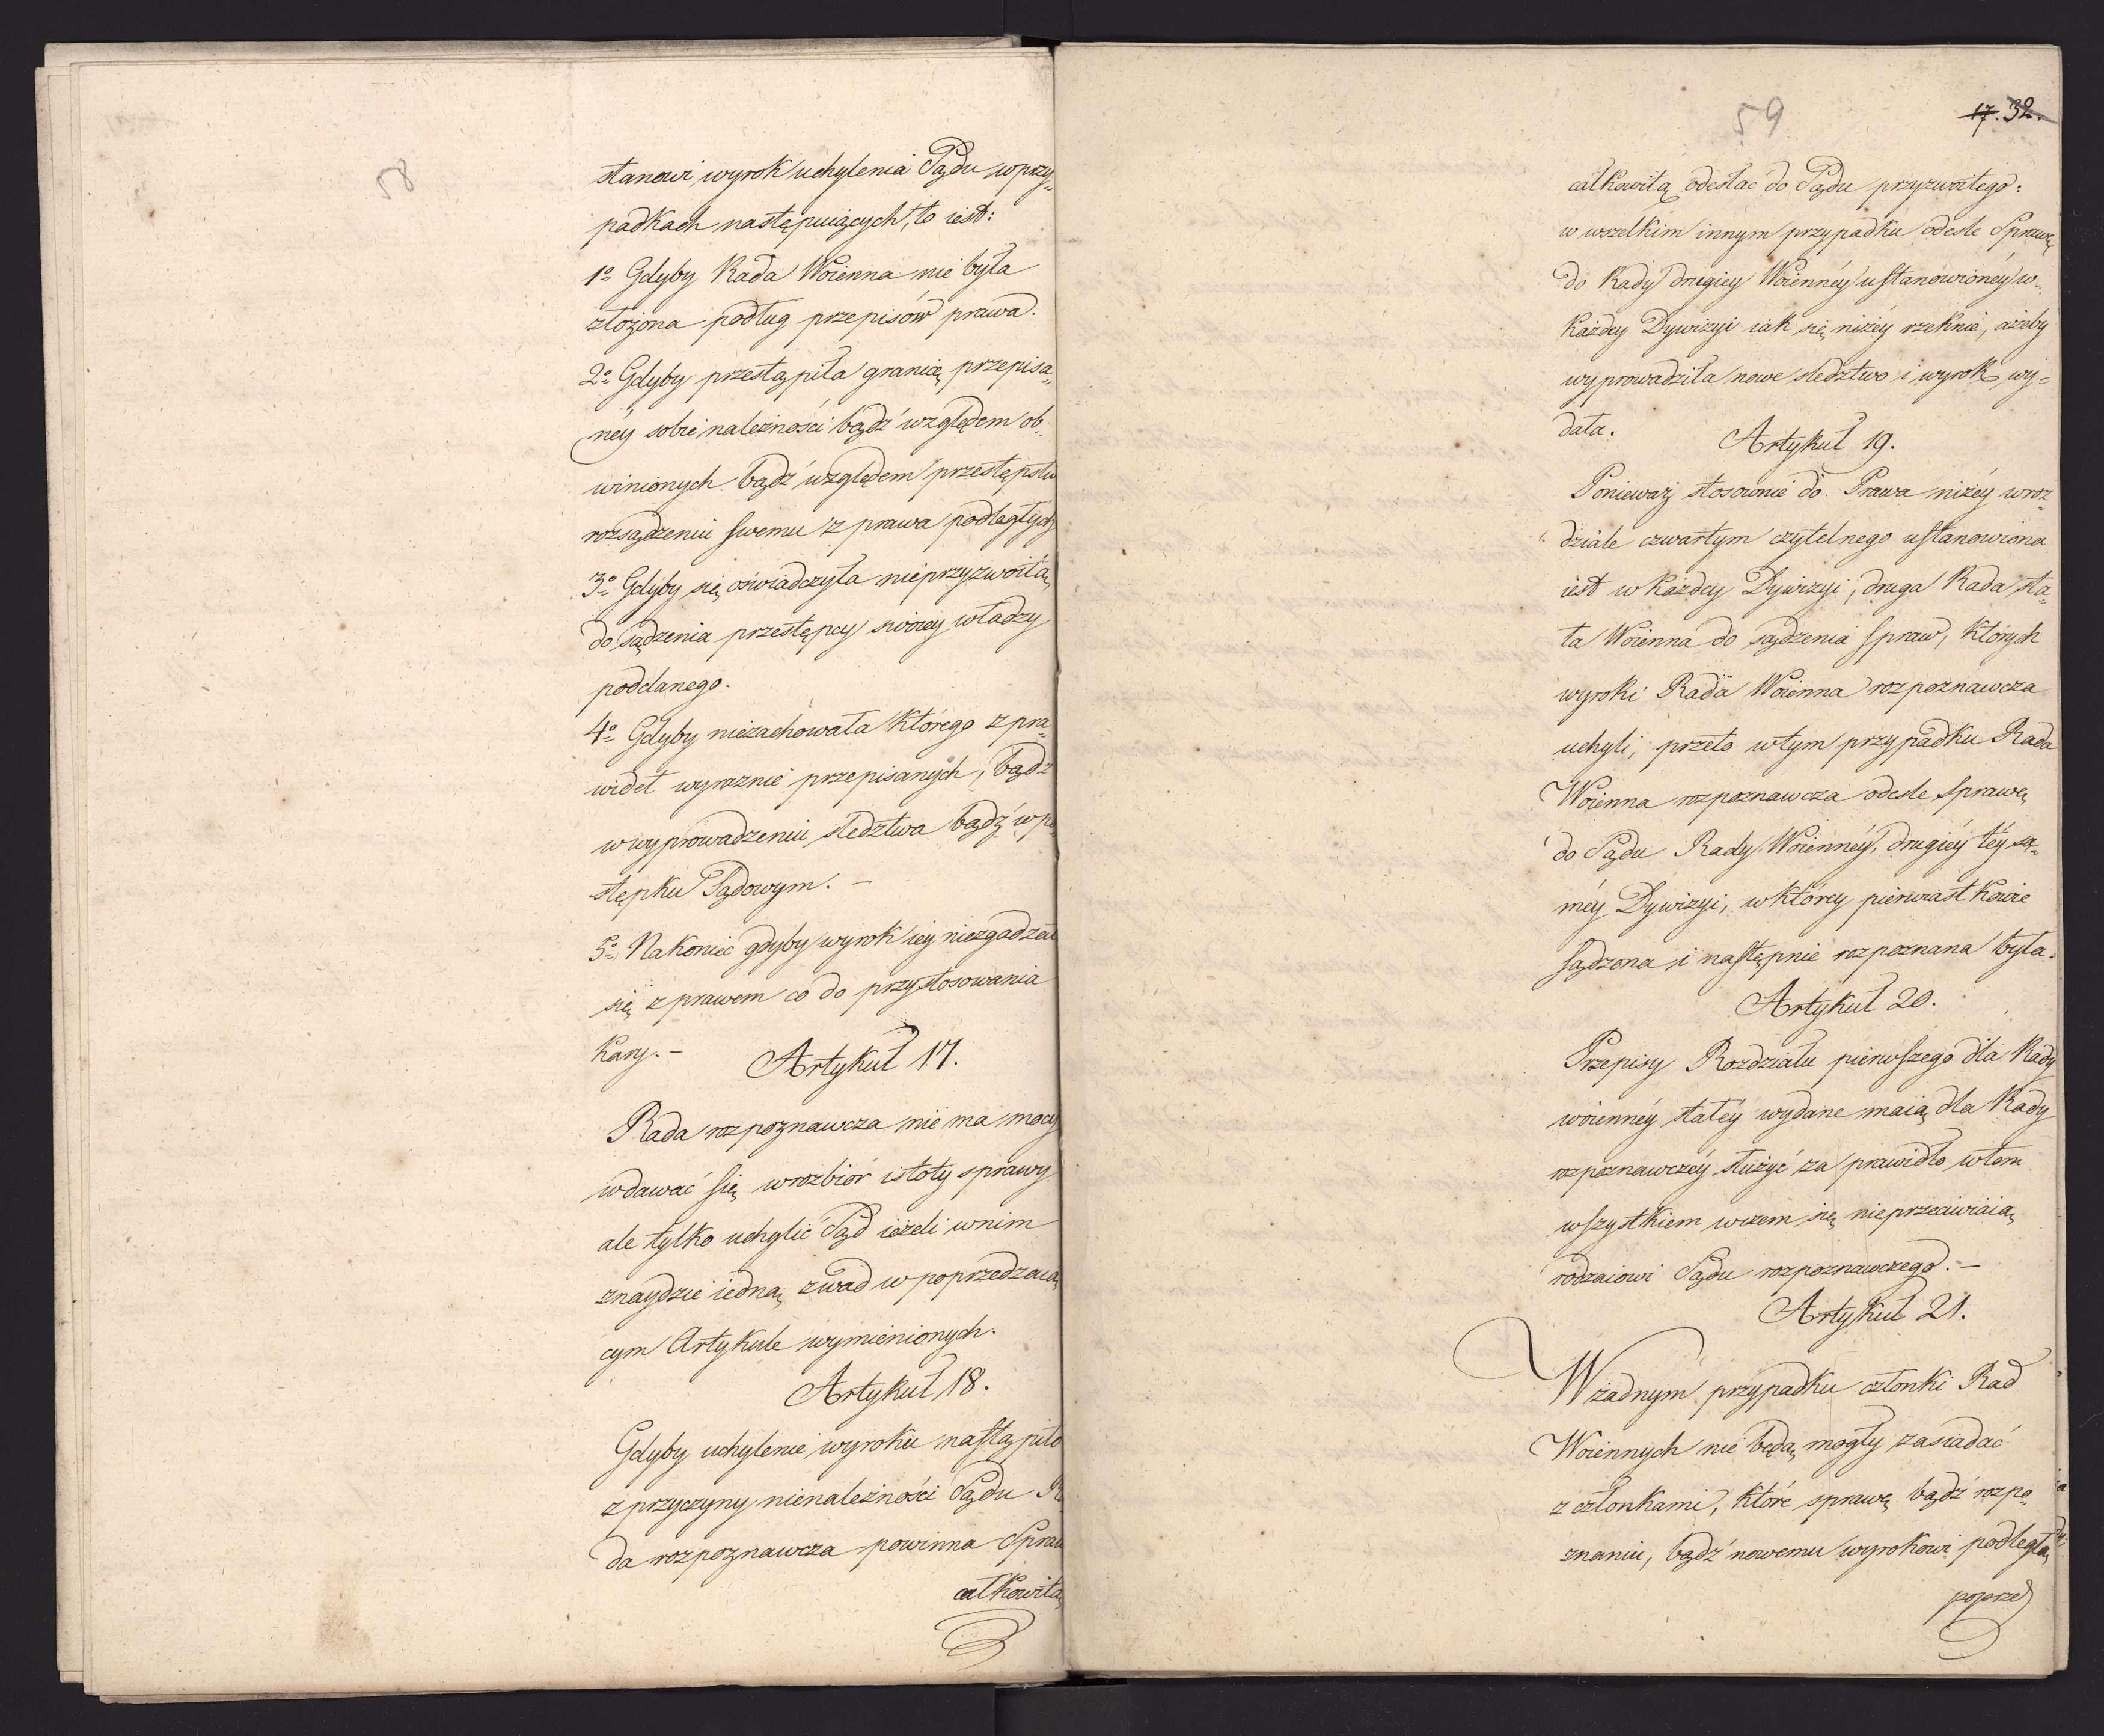 58
stanowi wyrok uchylenia Sądu w przy=
padkach następuiących, to iest:
1o Gdyby Rada Woienna nie była
złożona podług przepisów prawa.
2o Gdyby przestąpiła granicę przepisa=
néy sobie należności bądź względem ob=
winionych bądź względem przestępstw
rozsądzeniu swemu z prawa podległych
3o Gdyby się oświadczyła nieprzyzwoitą
do sądzenia przestępcy swoiey władzy
poddanego.
4o Gdyby niezachowała którego z pra=
wideł wyraznie przepisanych, bądz
w wyprowadzeniu sledztwa bądź w po
stępku Sądowym. –
5o Nakoniec gdyby wyrok iey niezgadzał
się z prawem co do przystosowania
Kary. – Artykuł 17.
Rada rozpoznawcza nie ma mocy
wdawać się w rozbiór istoty sprawy
ale tylko uchylić Sąd ieżeli w nim
znaydzie iedną z wad w poprzedzaią
cym Artykule wymienionych.
Artykuł 18.
Gdyby uchylenie wyroku nastąpiło
z przyczyny nienależności Sądu R
da rozpoznawcza powinna Spraw
całkowitą
59
17. 32.
całkowitą odesłać do Sądu przyzwoitego:
w wszelkim innym przypadku odesle Sprawę
do Rady drugiey Woiennéy ustanowionéy w
każdey Dywizyi iak się niżéy rzeknie, ażeby
wyprowadziła nowe sledztwo i wyrok wy=
dała. Artykuł 19.
Ponieważ stosownie do Prawa niżéy w roz=
dziale czwartym czytelnego ustanowiona
iest w każdey Dywizyi, druga Rada sta=
ła Woienna do sądzenia spraw, których
wyroki Rada Woienna rozpoznawcza
uchyli, przeto w tym przypadku Rada
Woienna rozpoznawcza odesle sprawę
do Sądu Rady Woiennéy drugiéy téy sa=
méy Dywizyi, w którey pierwiastkowie
sądzona i następnie rozpoznana była.
Artykuł 20.
Przepisy Rozdziału pierwszego dla Rady
woiennéy stałéy wydane maią dla Rady
rozpoznawczéy służyć za prawidło w tem
wszystkiem w czem się nieprzeciwiaią
rodzaiowi Sądu rozpoznawczego. –
Artykuł 21.
W żadnym przypadku członki Rad
Woiennych nie będą mogły zasiadać
z członkami, które sprawę bądź rozpo=
znaniu, bądź nowemu wyrokowi podległą
poprzed